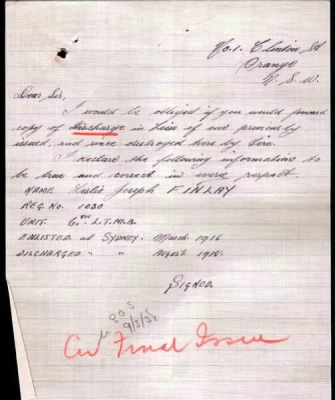 No. 1. Clinton St
Orange
N. S. W.
Dear Sir,
I would be obliged if you would forward
copy of Discharge in Lieu of one previously
issued, and since destroyed here by Fire.
I declare the following information to
be true and correct in every respect.
NAME Leslie Joseph FINLAY
REG. No. 1030
UNIT. 6TH L.T.M.B.
ENLISTED at SYDNEY. March 1916
DISCHARGED " " August 1918.
Signed.
9/3/38
Final Issue